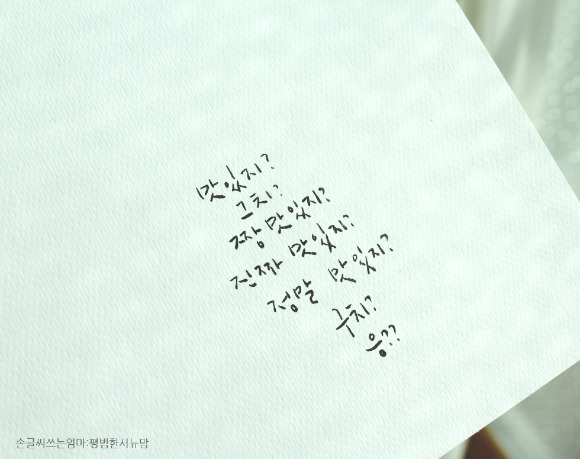 맛있지?
그치?
짱 맛있지?
진짜 맛있지?
정말 맛있지?
구치?
응??
손글씨쓰는엄마:평범한서뉴맘